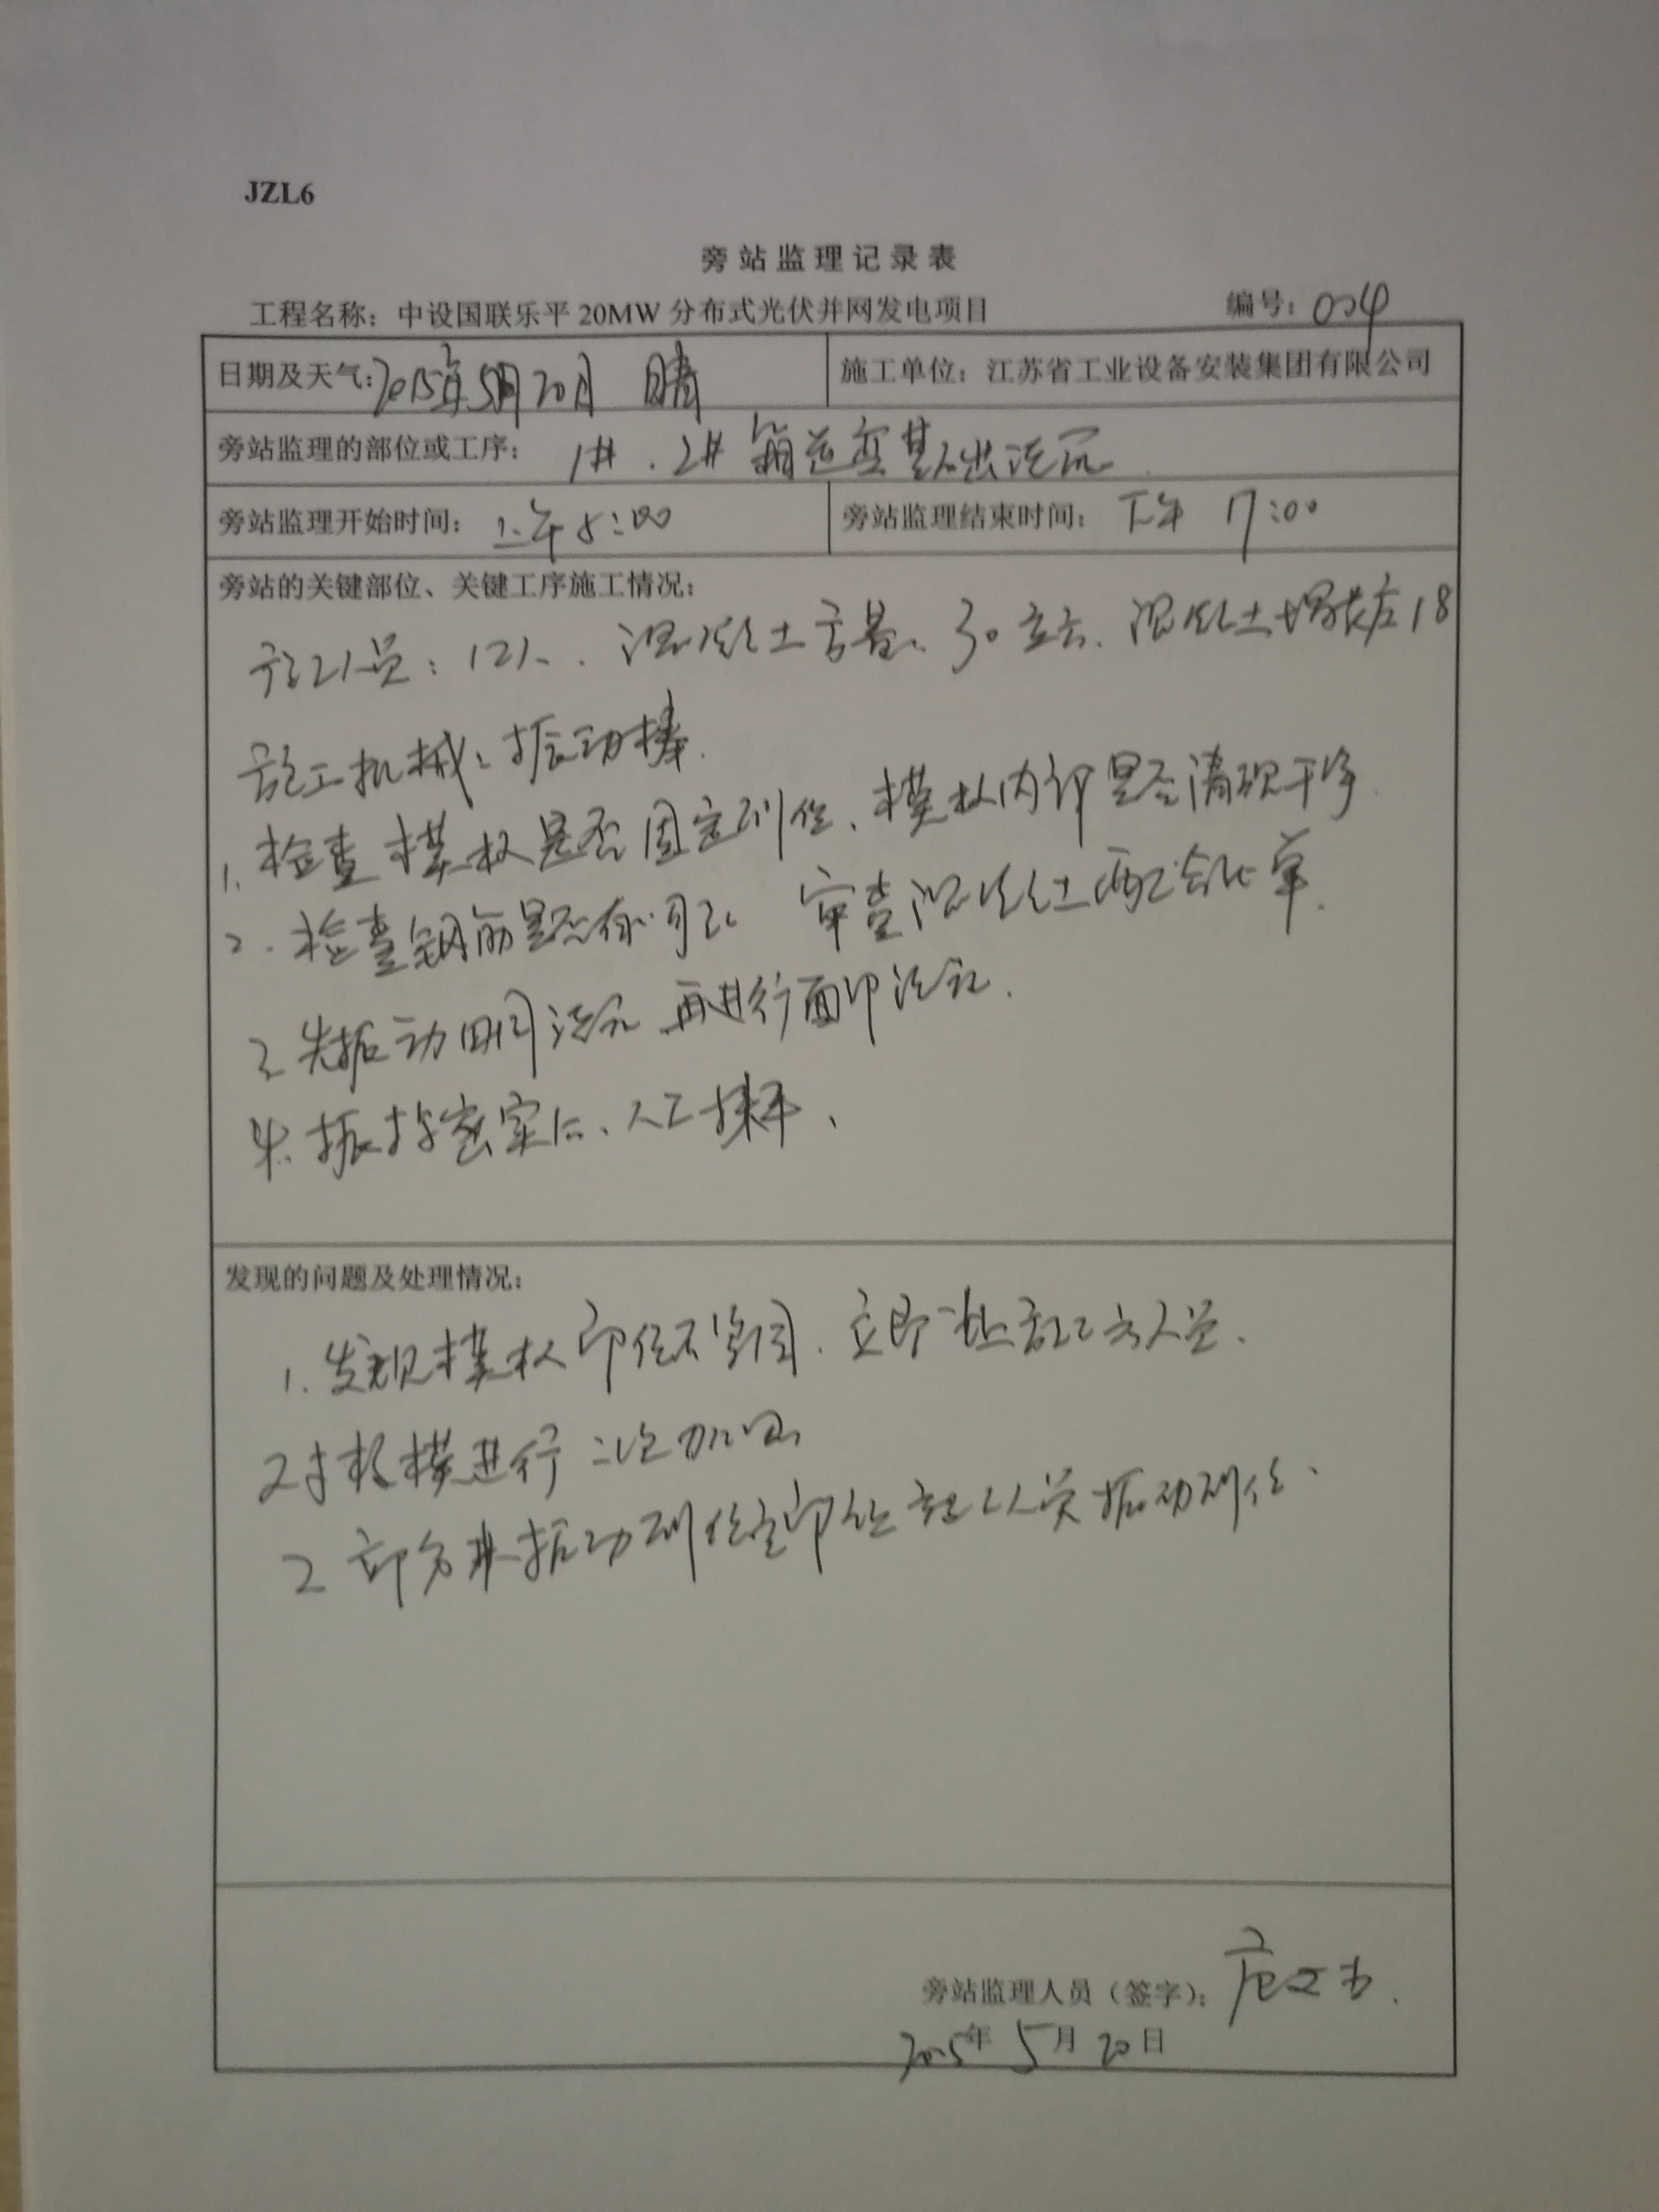 JZL6
旁站监理记录表
工程名称：中设国联乐平 20MW 分布式光伏并网发电项目 编号：004
日期及天气：2015年5月20日 晴 施工单位：江苏省工业设备安装集团有限公司
旁站监理的部位或工序：1#、2# 箱逆变基础浇沉
旁站监理开始时间：上午 8:00 旁站监理结束时间：下午 17:00
旁站的关键部位、关键工序施工情况：
施工人员：12人、混凝土方量、30立方、混凝土塌落度18
施工机械：振动棒.
1. 检查模板是否固定到位、模板内部是否清理干净.
2. 检查钢筋是否 审查混凝土配合比单.
3. 先振动 再进行面部
4. 振捣密实后、人工抹平、
发现的问题及处理情况：
1. 发现模板部位不紧固、立即让施工方人员、
对板模进行二次加固
2 部分未振动到位立即让施工人员振动到位.
旁站监理人员（签字）：
2015年 5月 20日